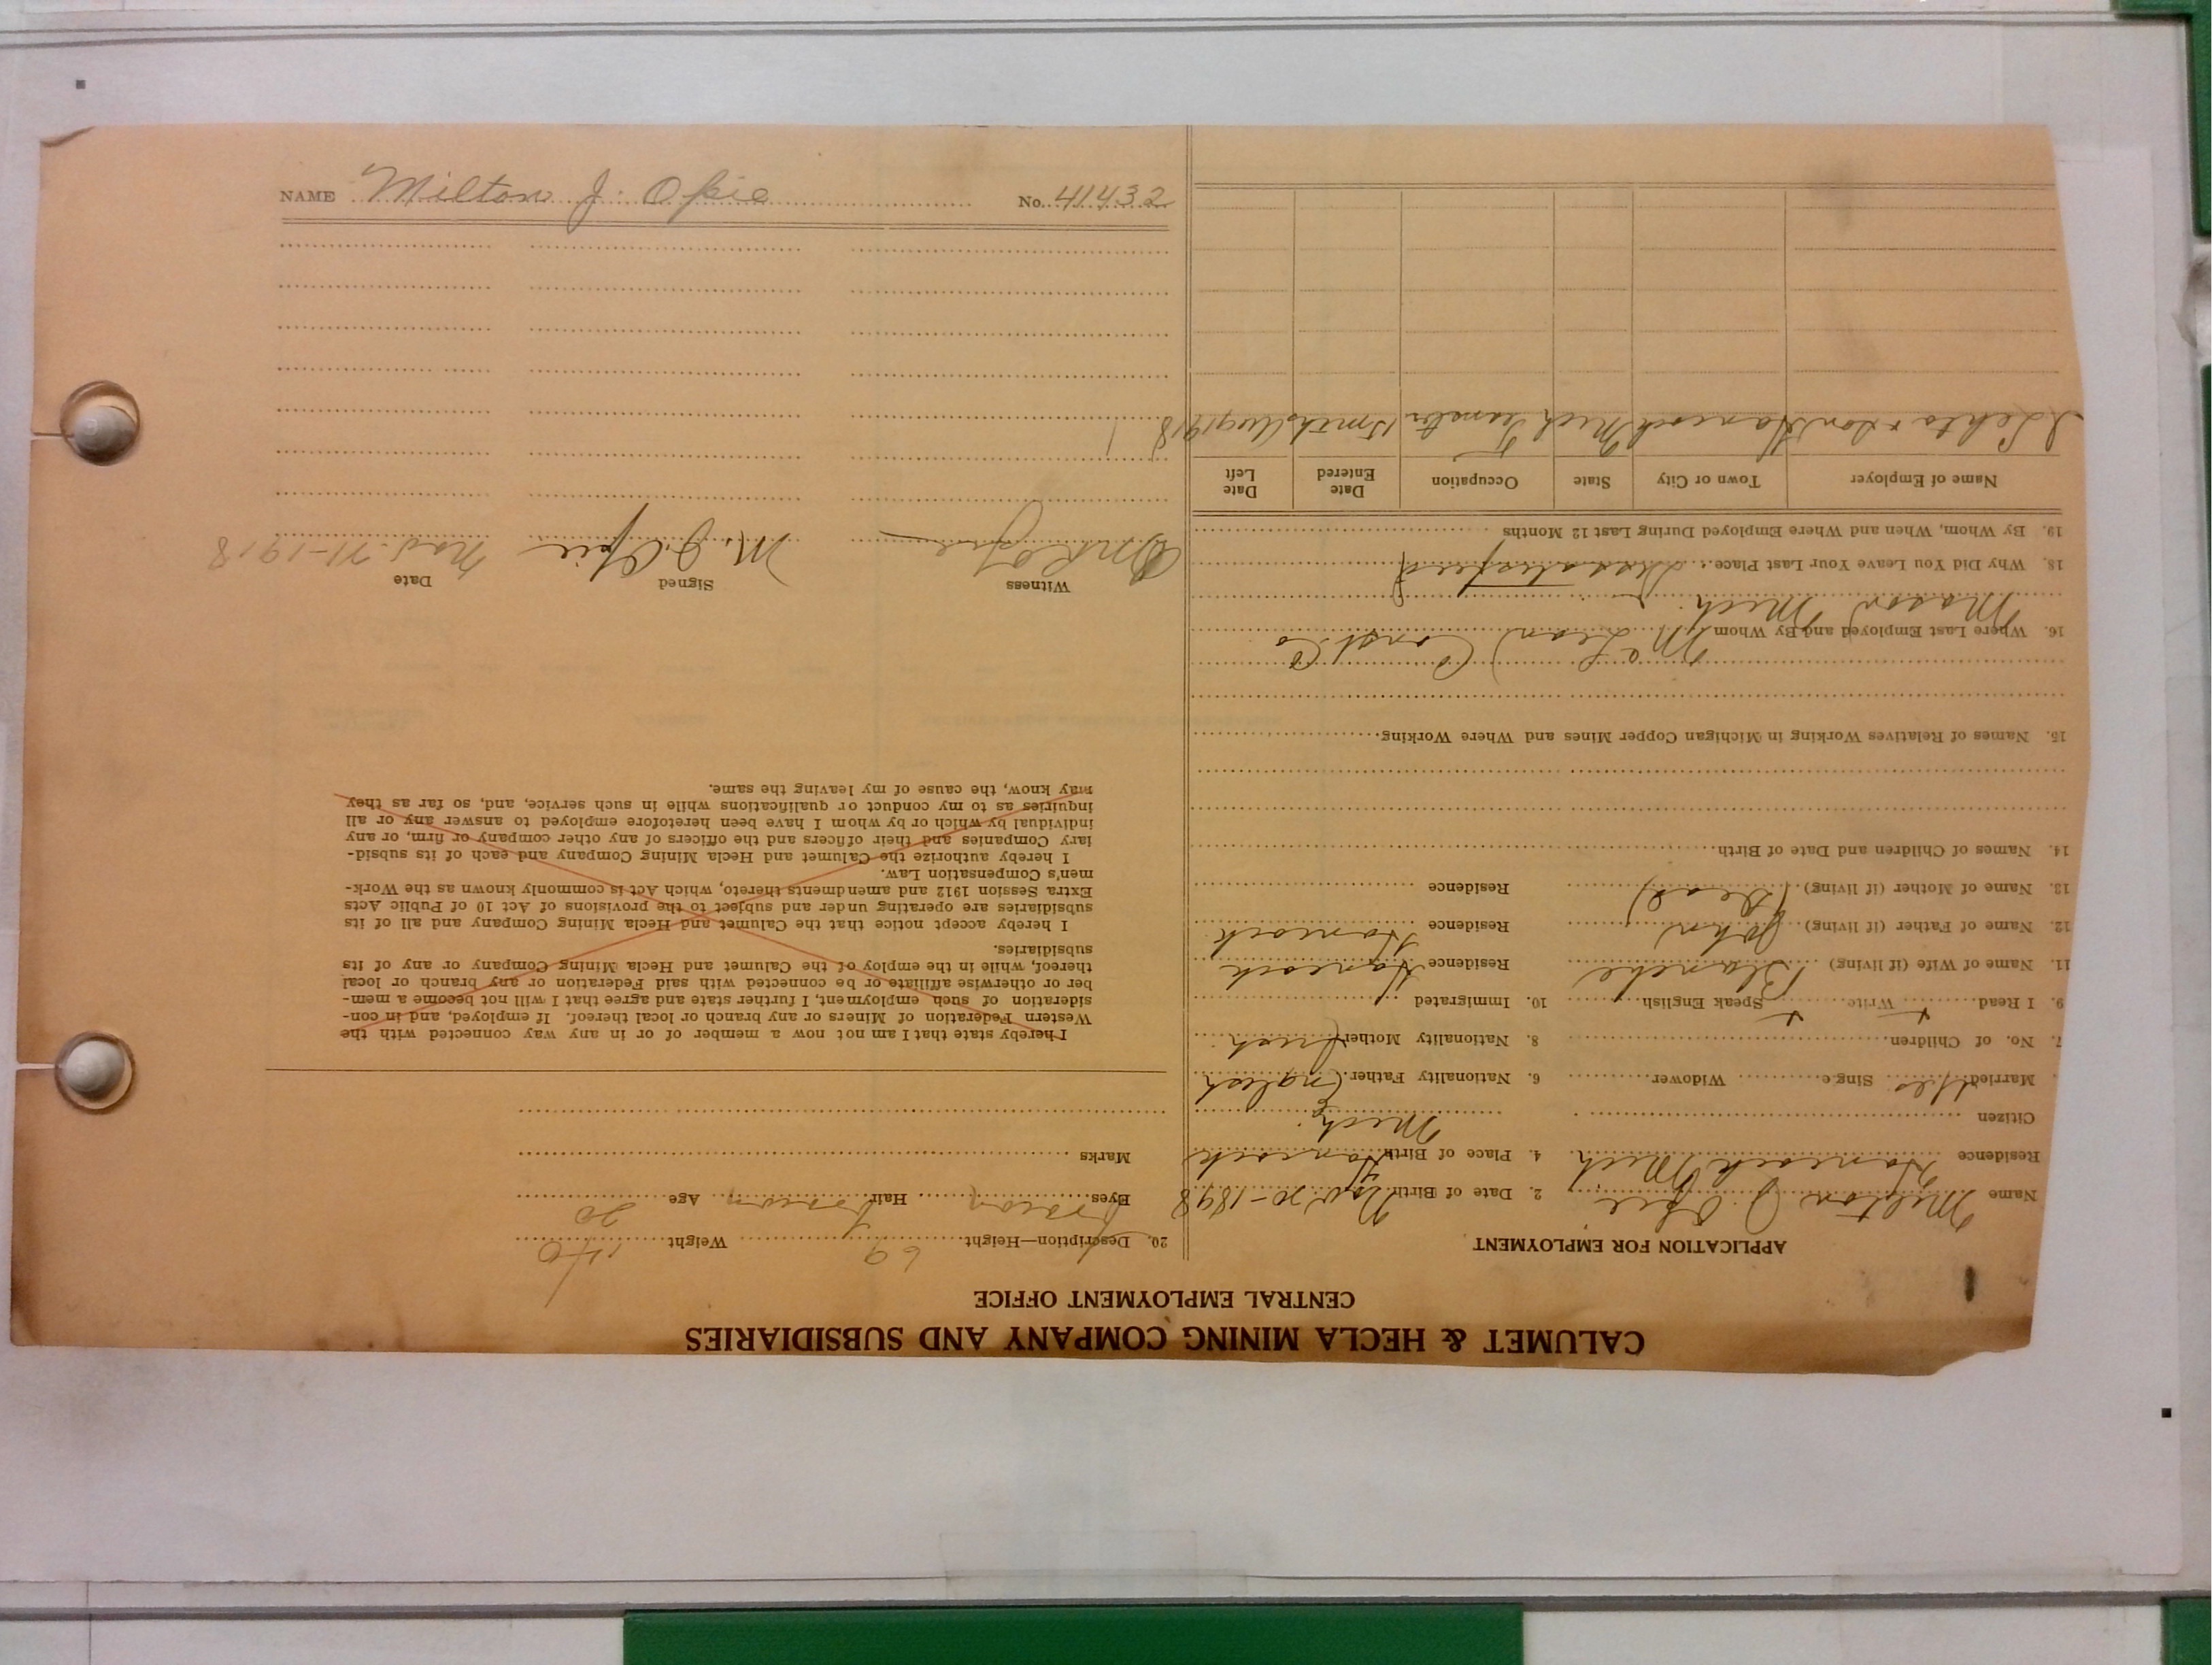 CALUMET & HECLA MINING COMPANY AND SUBSIDIARIES
CENTRAL EMPLOYMENT OFFICE
APPLICATION FOR EMPLOYMENT
Name Milton J. Opie 2. Date of Birth Nov 20-1898
Residence Hancock Mich 4. Place of Birth Hancock
Mich.
Citizen
Married Yes Single Widower 6. Nationality Father English
7. No. of Children 8. Nationality Mother
9. I Read Write Speak English 10. Immigrated
11. Name of Wife (if living) Blanche Residence Hancock
12. Name of Father (if living) John Residence Hancock
13. Name of Mother (if living) (Dead) Residence
14. Names of Children and Date of Birth
15. Names of Relatives Working in Michigan Copper Mines and Where Working.
16. Where Last Employed and By Whom McLean Const. Co
Mason Mich.
18. Why Did You Leave Your Last Place Dissatisfied
19. By Whom, When and Where Employed During Last 12 Months
Name of Employer Town or City State Occupation Date Entered Date Left
Lehto & Son Hancock Mich Teamster 15 mths Aug 1918
20. Description—Height 69 Weight 140
Eyes brown Hair brown Age 20
Marks
I hereby state that I am not now a member of or in any way connected with the
Western Federation of Miners or any branch or local thereof. If employed, and in con-
sideration of such employment, I further state and agree that I will not become a mem-
ber or otherwise affiliate or be connected with said Federation or any branch or local
thereof, while in the employ of the Calumet and Hecla Mining Company or any of its
subsidiaries.
I hereby accept notice that the Calumet and Hecla Mining Company and all of its
subsidiaries are operating under and subject to the provisions of Act 10 of Public Acts
Extra Session 1912 and amendments thereto, which Act is commonly known as the Work-
men's Compensation Law.
I hereby authorize the Calumet and Hecla Mining Company and each of its subsid-
iary Companies and their officers and the officers of any other company or firm, or any
individual by which or by whom I have been heretofore employed to answer any or all
inquiries as to my conduct or qualifications while in such service, and, so far as they
may know, the cause of my leaving the same.
Witness Signed Date
M. J. Opie 1918
NAME Milton J. Opie No. 41432